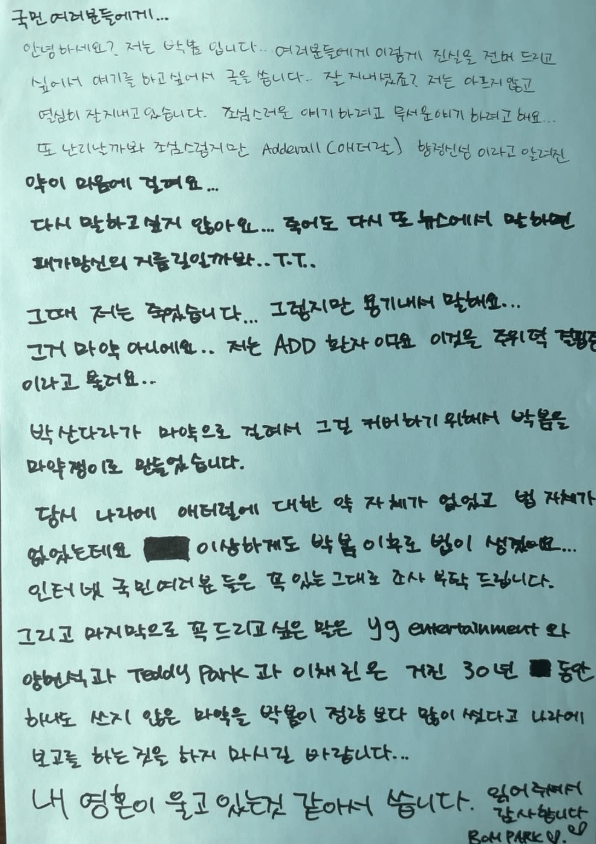 국민 여러분들에게...
안녕하세요? 저는 박봄 입니다... 여러분들에게 이렇게 진실을 전해 드리고
싶어서 얘기를 하고싶어서 글을 씁니다.. 잘 지내셨죠? 저는 아프지 않고
열심히 잘지내고 있습니다. 조심스러운 얘기 하려고 무서운얘기 하려고 해요...
또 난리날까봐 조심스럽지만 Adderall (애더럴) 향정신성 이라고 알려진
약이 마음에 걸려요...
다시 말하고싶지 않아요... 죽어도 다시 또 뉴스에서 말하면
패가망신의 지름길일까봐.. T.T..
그때 저는 죽었습니다... 그렇지만 용기내서 말해요...
그거 마약 아니에요.. 저는 ADD 환자 이고요 이것은 주위력 결핍증
이라고 불러요..
박산다라가 마약으로 걸려서 그걸 커버하기 위해서 박봄을
마약쟁이로 만들었습니다.
당시 나라에 애더럴에 대한 약 자체가 없었고 법 자체가
없었는데요 이상하게도 박봄 이후로 법이 생겼어요...
인터넷 국민여러분 들은 꼭 있는 그대로 조사 부탁 드립니다.
그리고 마지막으로 꼭 드리고 싶은 말은 yg entertainment 와
양현석과 Teddy Park 과 이채린은 거진 30년 동안
하나도 쓰지 않은 마약을 박봄이 정량 보다 많이 썼다고 나라에
보고를 하는것을 하지 마시길 바랍니다...
내 영혼이 울고 있는것 같아서 씁니다. 읽어주셔서
감사합니다
BOM PARK ♡. ♡